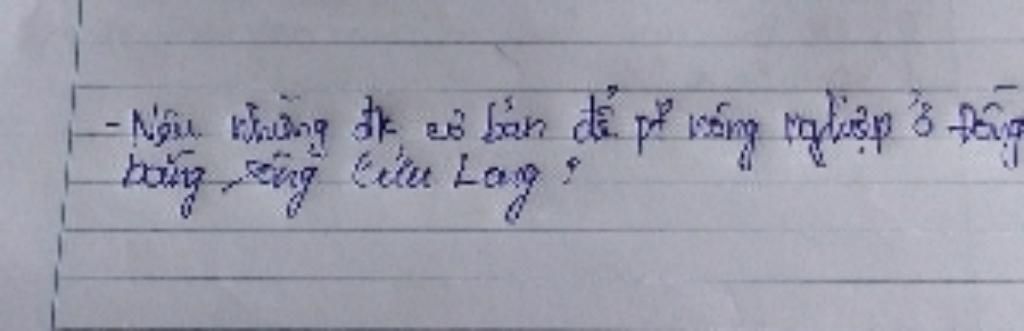 - Nêu những đk cơ bản để pt nông nghiệp ở Đồng
bằng sông Cửu Long ?